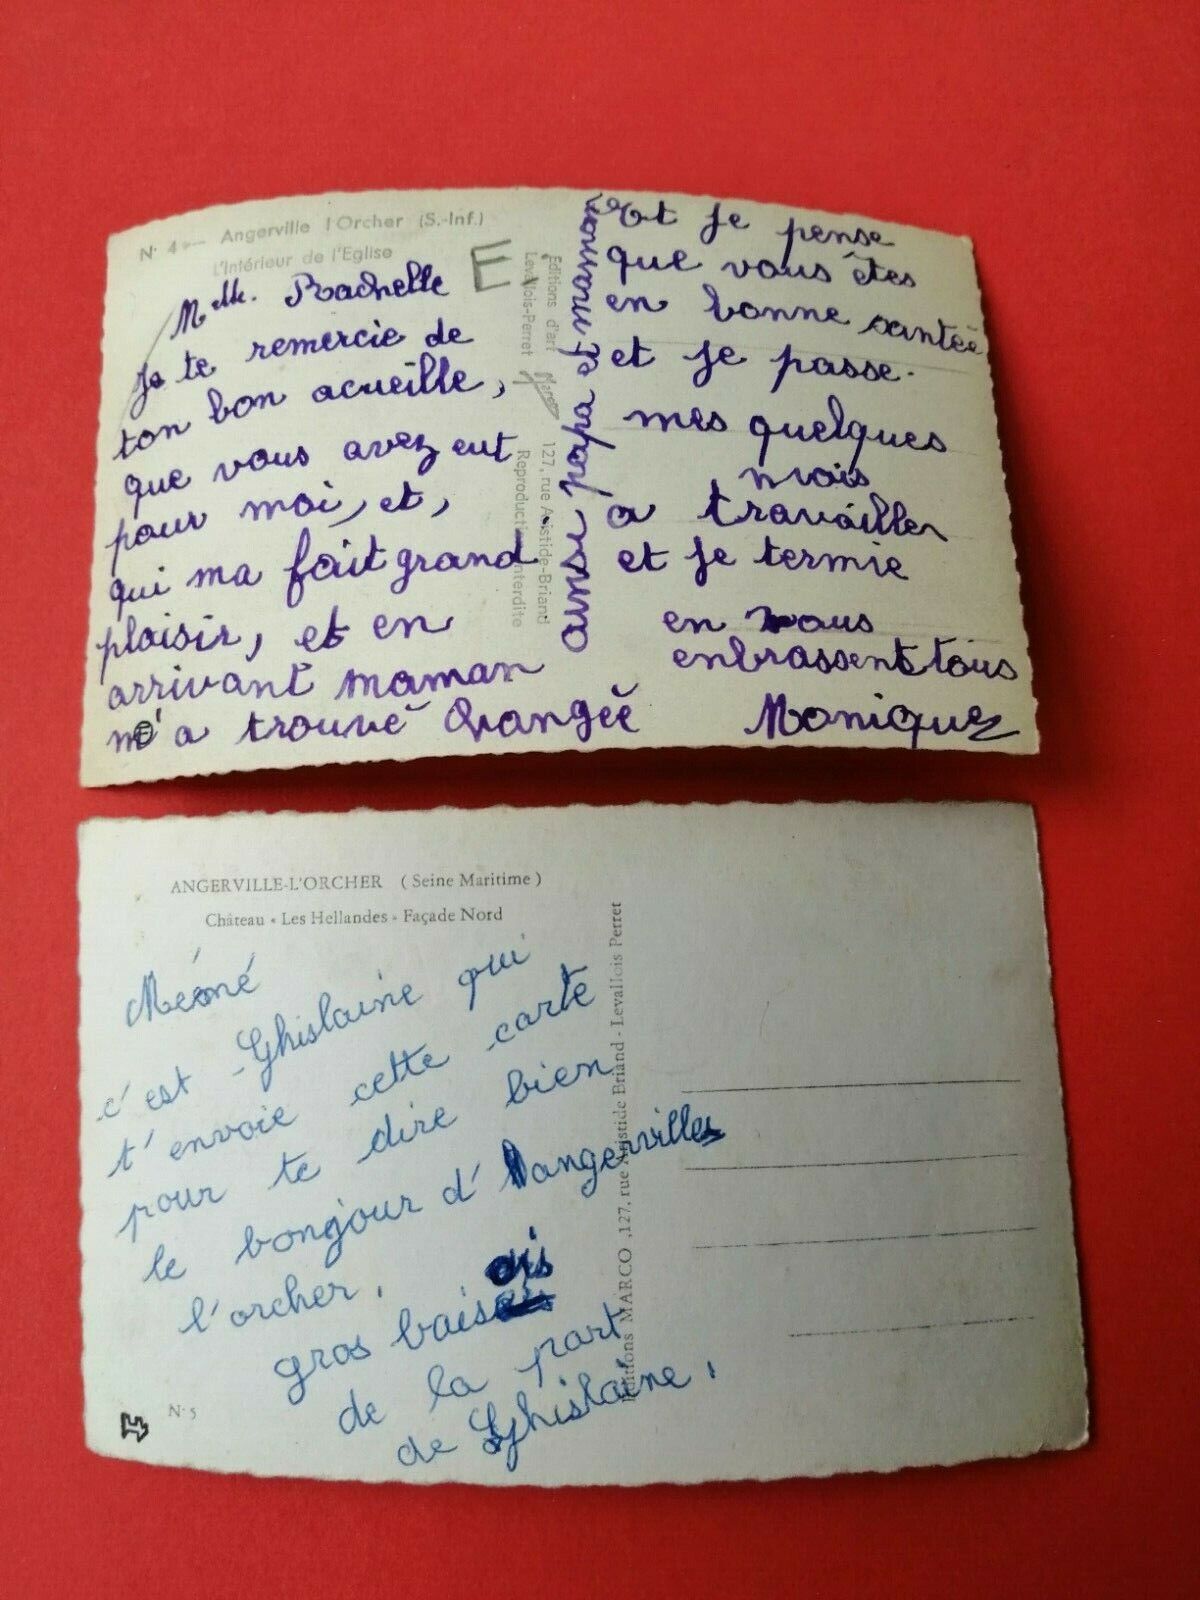 N° 4 — Angerville l'Orcher (S.-Inf.)
L'Intérieur de l'Eglise
E
Melle. Rachelle
Je te remercie de
ton bon acueille,
que vous avez eut
pour moi, et,
qui ma fait grand
plaisir, et en
arrivant maman
m'a trouvé changéé
Editions d'art
Levallois-Perret
127, rue Aristide-Briand
Reproduction interdite
ainsi, papa et maman
Et je pense
que vous êtes
en bonne santée
et je passe.
mes quelques
mois
a travailler
et je termie
en vous
enbrassents tous
Monique
ANGERVILLE-L'ORCHER (Seine Maritime)
Château « Les Hellandes » Façade Nord
Mémé
c'est Ghislaine qui
t'envoie cette carte
pour te dire bien
le bonjour d'angerville
l'orcher.
gros bais
de la part
de Ghislaine.
N° 5
Editions MARCO, 127, rue Aristide Briand - Levallois Perret